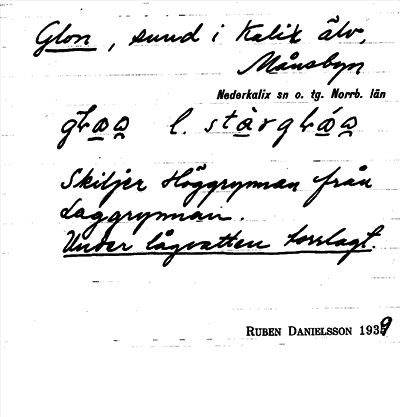 Glon, sund i Kalix älv,
Månsbyn
Nederkalix sn o. tg. Norrb. län
l.
Skiljer Höggrynnan från
Laggrynnan.
Under lågvatten torrlagt.
RUBEN DANIELSSON 1939